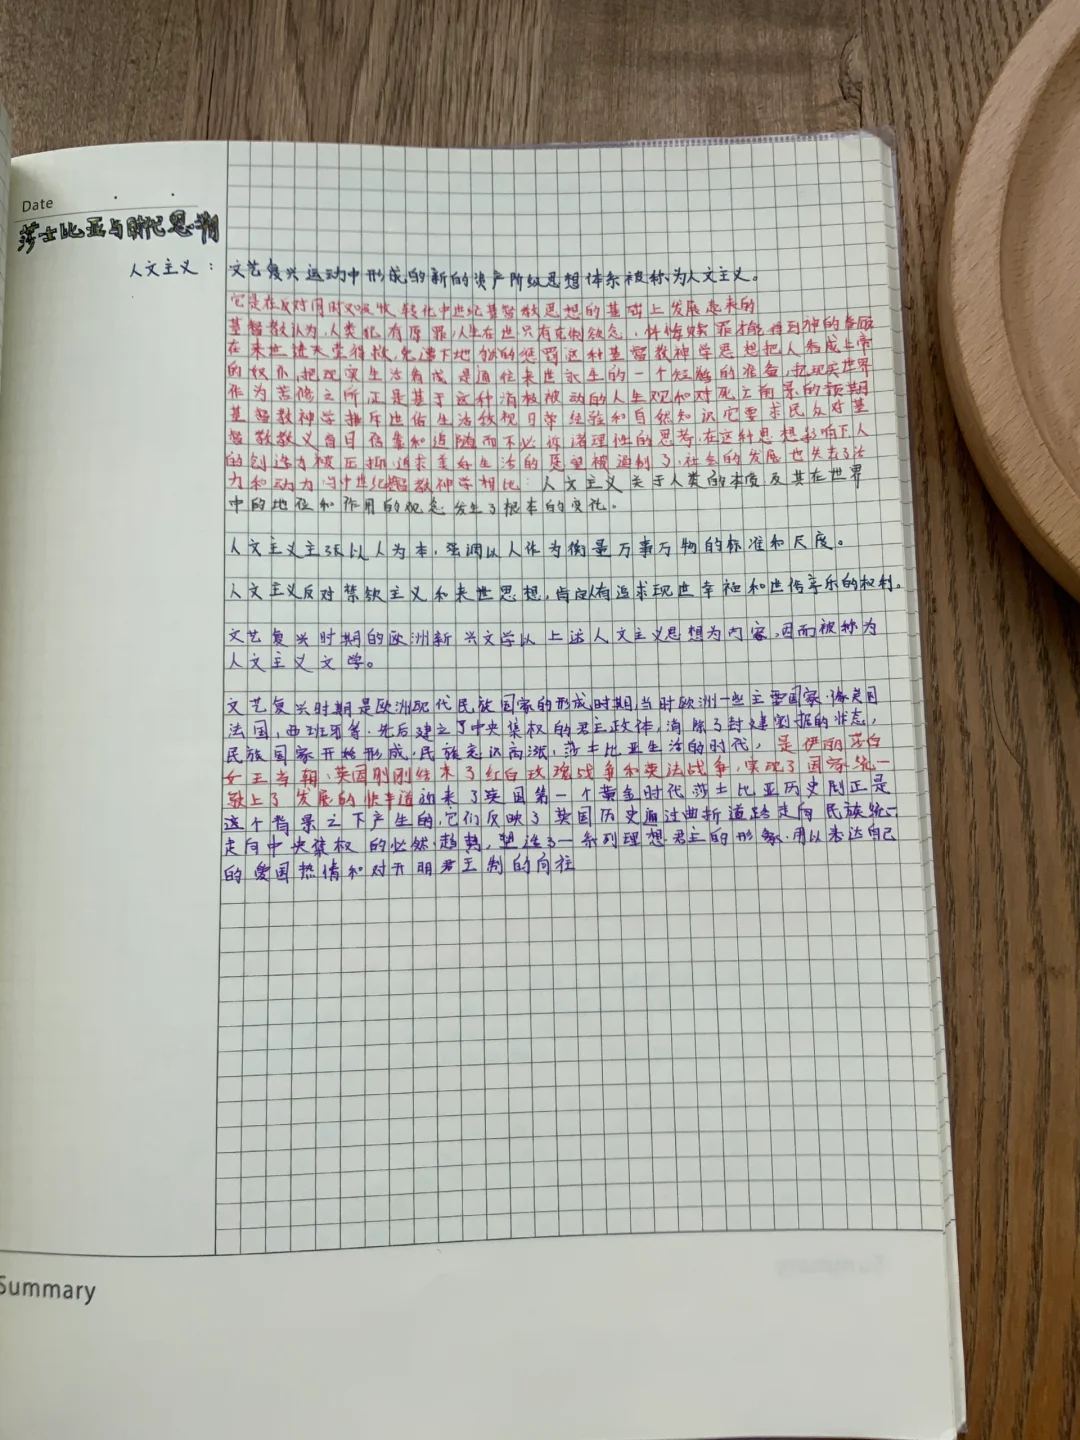 Date
莎士比亚与时代思潮
人文主义：
文艺复兴运动中形成的新的资产阶级思想体系被称为人文主义。
它是在反对同时又吸收、转化中世纪基督教思想的基础上发展起来的
基督教认为,人类化有原罪,人生在世只有克制欲念、忏悔赎罪才能得到神的眷顾
在来世进天堂得救,免遭下地狱的惩罚这种基督教神学思想把人看成上帝
的奴仆,把现实生活看成是通往来世永生的一个短暂的准备,把现实世界
作为苦修之所正是基于这种消极被动的人生观和对死亡前景的预期
基督教神学排斥世俗生活歧视日常经验和自然知识它要求民众对基
督教教义盲目信靠和追随而不必作诸理性的思考,在这种思想影响下人
的创造力被压抑追求美好生活的愿望被遏制了,社会的发展也失去了活
力和动力与中世纪基督教神学相比：人文主义关于人类的本质及其在世界
中的地位和作用的观念发生了根本的变化。
人文主义主张以人为本，强调以人作为衡量万事万物的标准和尺度。
人文主义反对禁欲主义和来世思想，肯定人有追求现世幸福和世俗享乐的权利。
文艺复兴时期的欧洲新兴文学以上述人文主义思想为内容,因而被称为
人文主义文学。
文艺复兴时期是欧洲现代民族国家的形成时期,当时欧洲一些主要国家,像英国
法国,西班牙等,先后建立了中央集权的君主政体,消除了封建割据的状态,
民族国家开始形成,民族意识高涨,莎士比亚生活的时代，是伊丽莎白
女王当朝,英国刚刚结束了红白玫瑰战争和英法战争,实现了国家统一
驶上了发展的快车道迎来了英国第一个黄金时代莎士比亚历史剧正是
这个背景之下产生的,它们反映了英国历史通过曲折道路走向民族统一
走向中央集权的必然趋势,塑造了一系列理想君主的形象,用以表达自己
的爱国热情和对开明君王制的向往
Summary